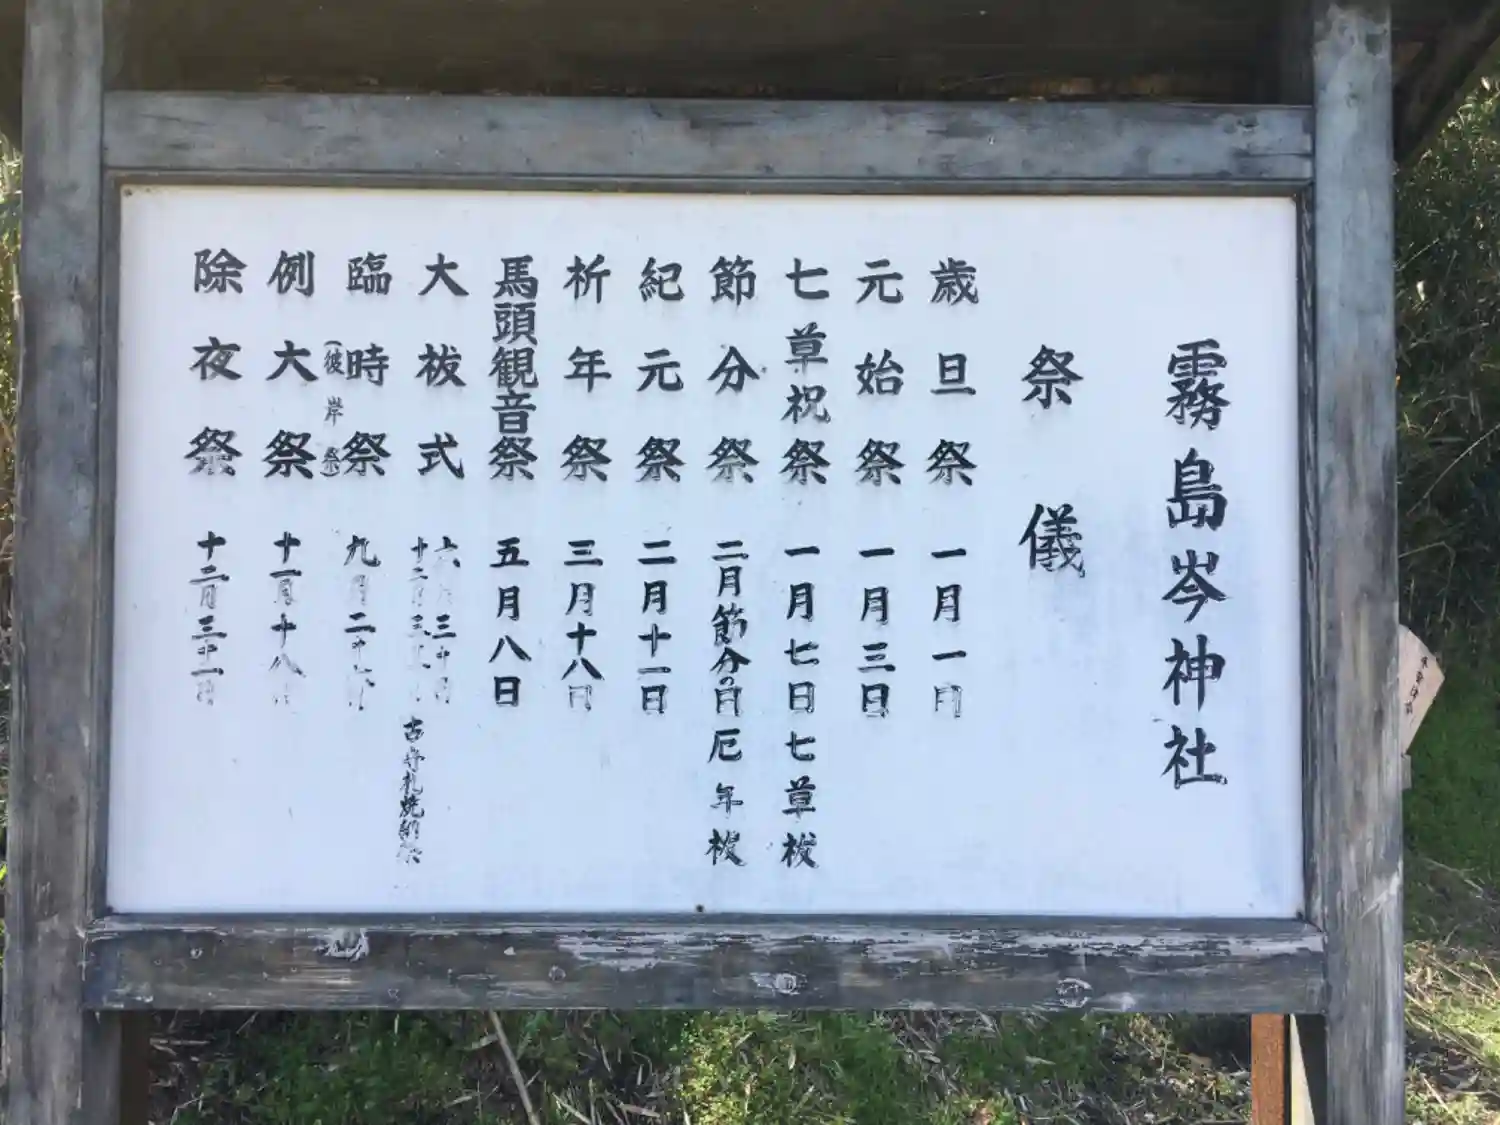 霧島岑神社
祭儀
歳旦祭 一月一日
元始祭 一月三日
七草祝祭 一月七日七草祓
節分祭 二月節分の日厄年祓
紀元祭 二月十一日
祈年祭 三月十八日
馬頭観音祭 五月八日
大祓式 六月三十日
十二月三十一日
古守札焼納祭
臨時祭 九月二十六日
(彼岸祭)
例大祭 十一月十八日
除夜祭 十二月三十一日